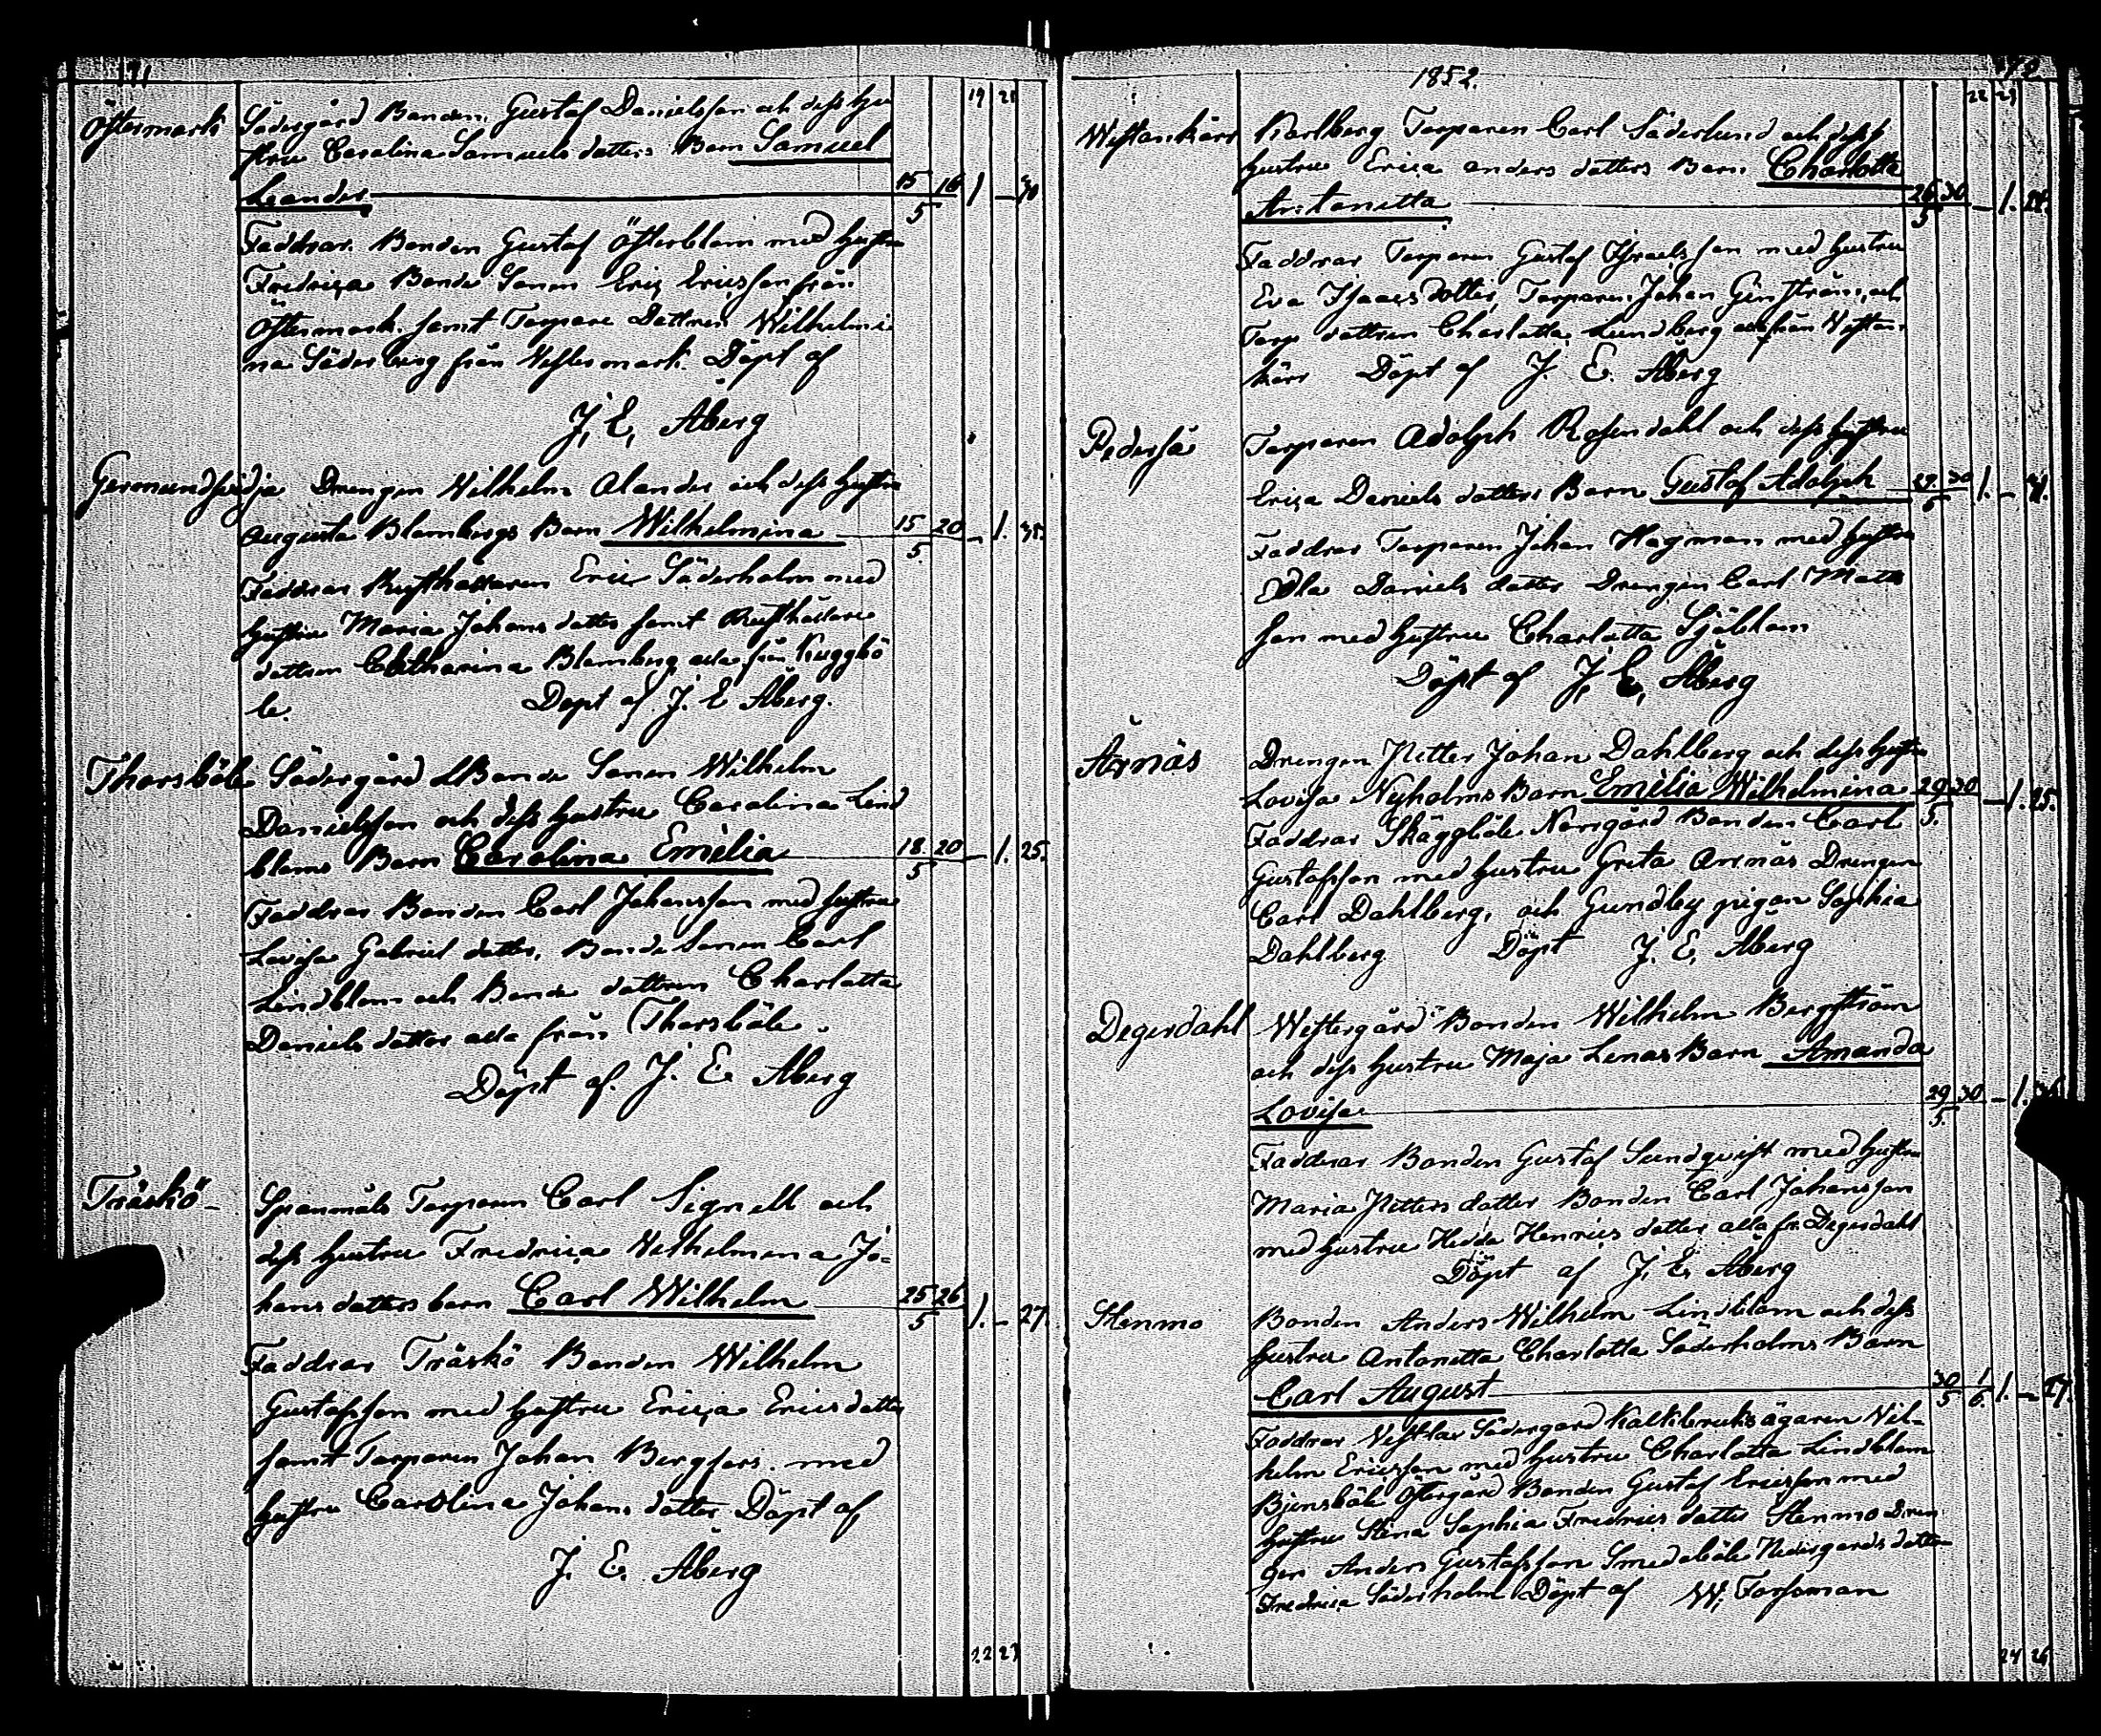 71
19 21
Östermark Södergård Bonden Gustaf Danielsson och dess hu
stru Carolina Samuels dotters Barn Samuel
Leander 15/5 16 1 – 30
Faddrar Bonden Gustaf Österblom med hustru
Fredrica Bonde Sonen Eric Ericsson från
Östermark samt Torpare Dottren Wilhelmi
na Söderberg från Westermark. Döpt af
J. E. Åberg
Germundsvedja Drengen Wilhelm Alander och dess hustru
Augusta Blombergs Barn Wilhelmina 15/5 20 – 1. 35.
Faddrar Rusthållaren Eric Söderholm med
hustru Maria Johans dotter samt Rusthållare
dottren Catharina Blomberg alla från Kuggbö
le. Döpt af J. E Åberg.
Thorsböle Södergård Bonde Sonen Wilhelm
Danielsson och dess hustru Carolina Lind
bloms Barn Carolina Emelia 18/5 20 – 1. 25.
Faddrar Bonden Carl Johansson med hustru
Lovisa Gabriel dotter, Bonde Sonen Carl
Lindblom och Bonde dottren Charlotta
Daniels dotter alla från Thorsböle.
Döpt af. J. E Åberg
Träskö – Spanmåls Torparen Carl Signell och
dess hustru Fredrica Wilhelmina Jo-
hans dotters barn Carl Wilhelm 25/5 26 1. – 27.
Faddrar Träskö Bonden Wilhelm
Gustafsson med hustru Erica Ericsdotter
samt Torparen Johan Bergfors. med
hustru Carolina Johans dotter Döpt af
J. E. Åberg
22 23
1852. 72
22 23
Westankärr Karlberg Torparen Carl Söderlund och dess
hustru Erica Anders dotters Barn Charlotta
Antonetta 26/5 30 – 1.
Faddrar Torparen Gustaf Israelsson med hustru
Eva Isaacs dotter, Torparen Johan Genström, och
Torp dottren Charlotta Lundberg alla från Westan
kärr Döpt af J. E. Åberg
Pederså Torparen Adolph Rosendahl och dess hustru
Erica Daniels dotters Barn Gustaf Adolph 29/5 30 1. –
Faddrar Torparen Johan Hagman med hustru
Edla Daniels dotter Drengen Carl Mats
son med hustru Charlotta Sjöblom
Döpt af J. E. Åberg
Årnäs Drengen Petter Johan Dahlberg och dess hustru
Lovisa Nyholms Barn Emelia Wilhelmina 29/5. 30 – 1. 25.
Faddrar Skäggböle Norrgård Bonden Carl
Gustafsson med hustru Greta Årnäs Drengen
Carl Dahlberg, och Gundby pigan Sophia
Dahlberg Döpt J. E. Åberg
Degerdahl Westergård Bonden Wilhelm Bergström
och dess hustru Maja Lenas Barn Amanda
Lovisa 29/5. 30 – 1.
Faddrar Bonden Gustaf Sundqvist med hustru
Maria Petters dotter Bonden Carl Johansson
med hustru Hedda Henrics dotter alla fr. Degerdahl
Döpt af J. E. Åberg
Stenmo Bonden Anders Wilhelm Lindblom och dess
hustru Antonetta Charlotta Söderholms Barn
Carl August 30/5 1/6. 1. – 27.
Faddrar Södergård Kalkbruksägaren Wil-
helm Ericsson med hustru Charlotta Lindblom
Bjensböle Östergård Bonden Gustaf Ericsson med
hustru Stina Sophia Fredrics dotter Stenmo Dren
gen Anders Gustafsson Smedsböle Nedergårds dottren
Fredrica Söderholm Döpt af W. Forssman
24 26